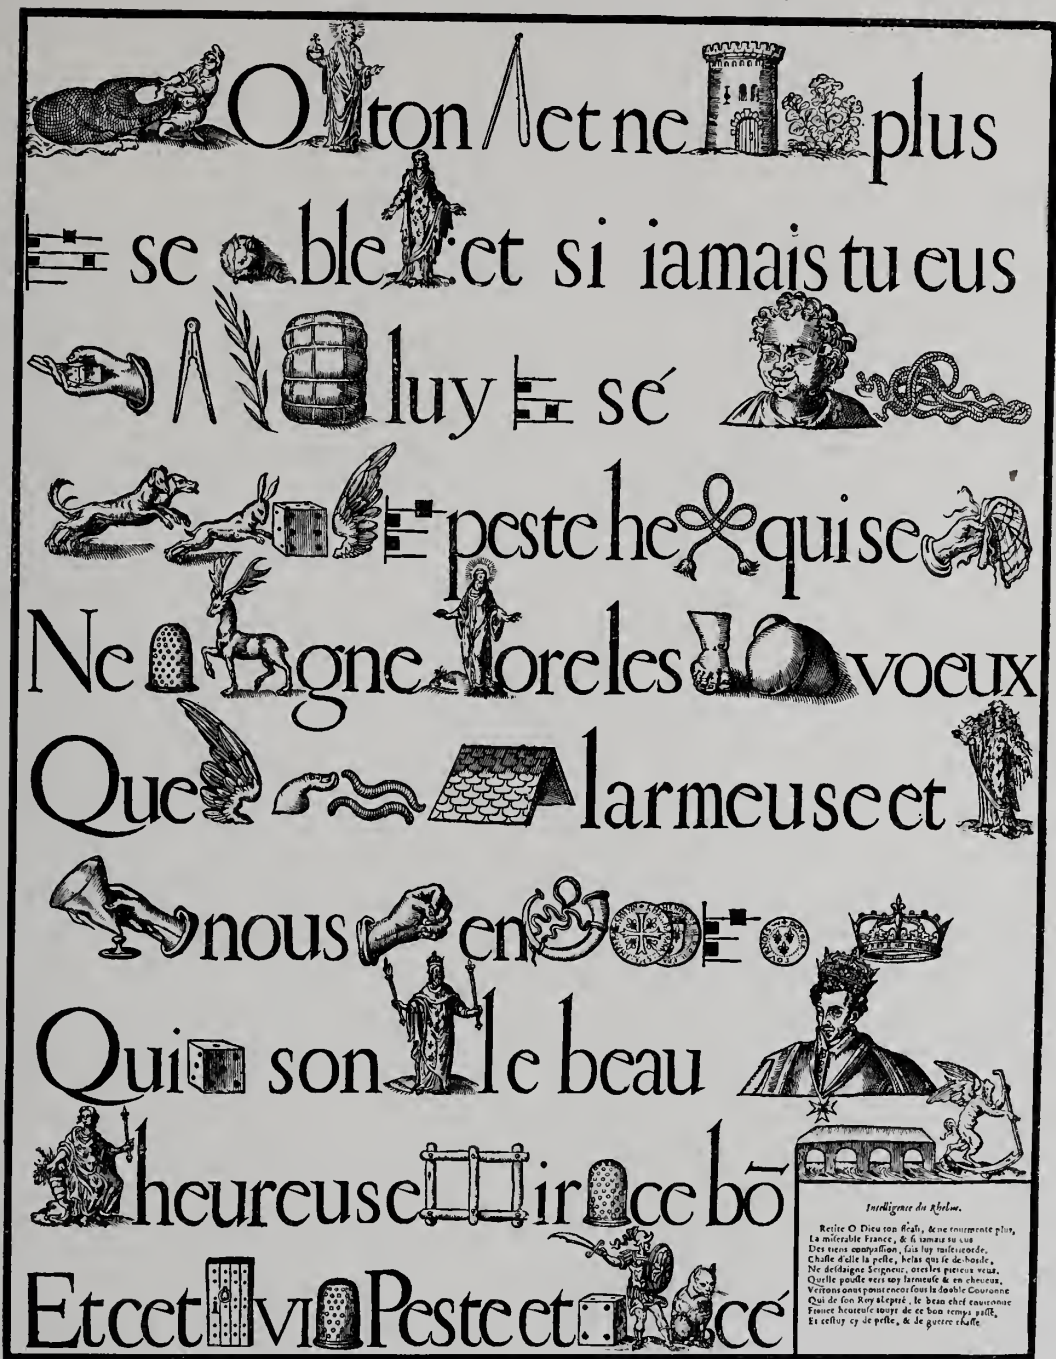 O ton et ne plus
se ble : et si iamais tu eus
luy sé
peste he qui se
Ne gne ore les voeux
Que larmeuse et
nous en
Qui son le beau
heureuse ir ce bō
Et cet vi Peste et cé
Intelligence du Rhebus.
Retire O Dieu ton fleau, & ne tourmente plus,
La miserable France, & si iamais tu eus
Des tiens compassion, fais luy misericorde.
Chasse d'elle la peste, helas qui se
Ne desdaigne Seigneur, ores les pieteux veux,
Quelle pousse vers toy larmeuse & en cheueux,
sous la double Couronne
Qui de son Roy le beau chef enuironne
France heureuse iouyr de ce bon temps passé,
Et cestuy cy de peste, & de guerre chassé.